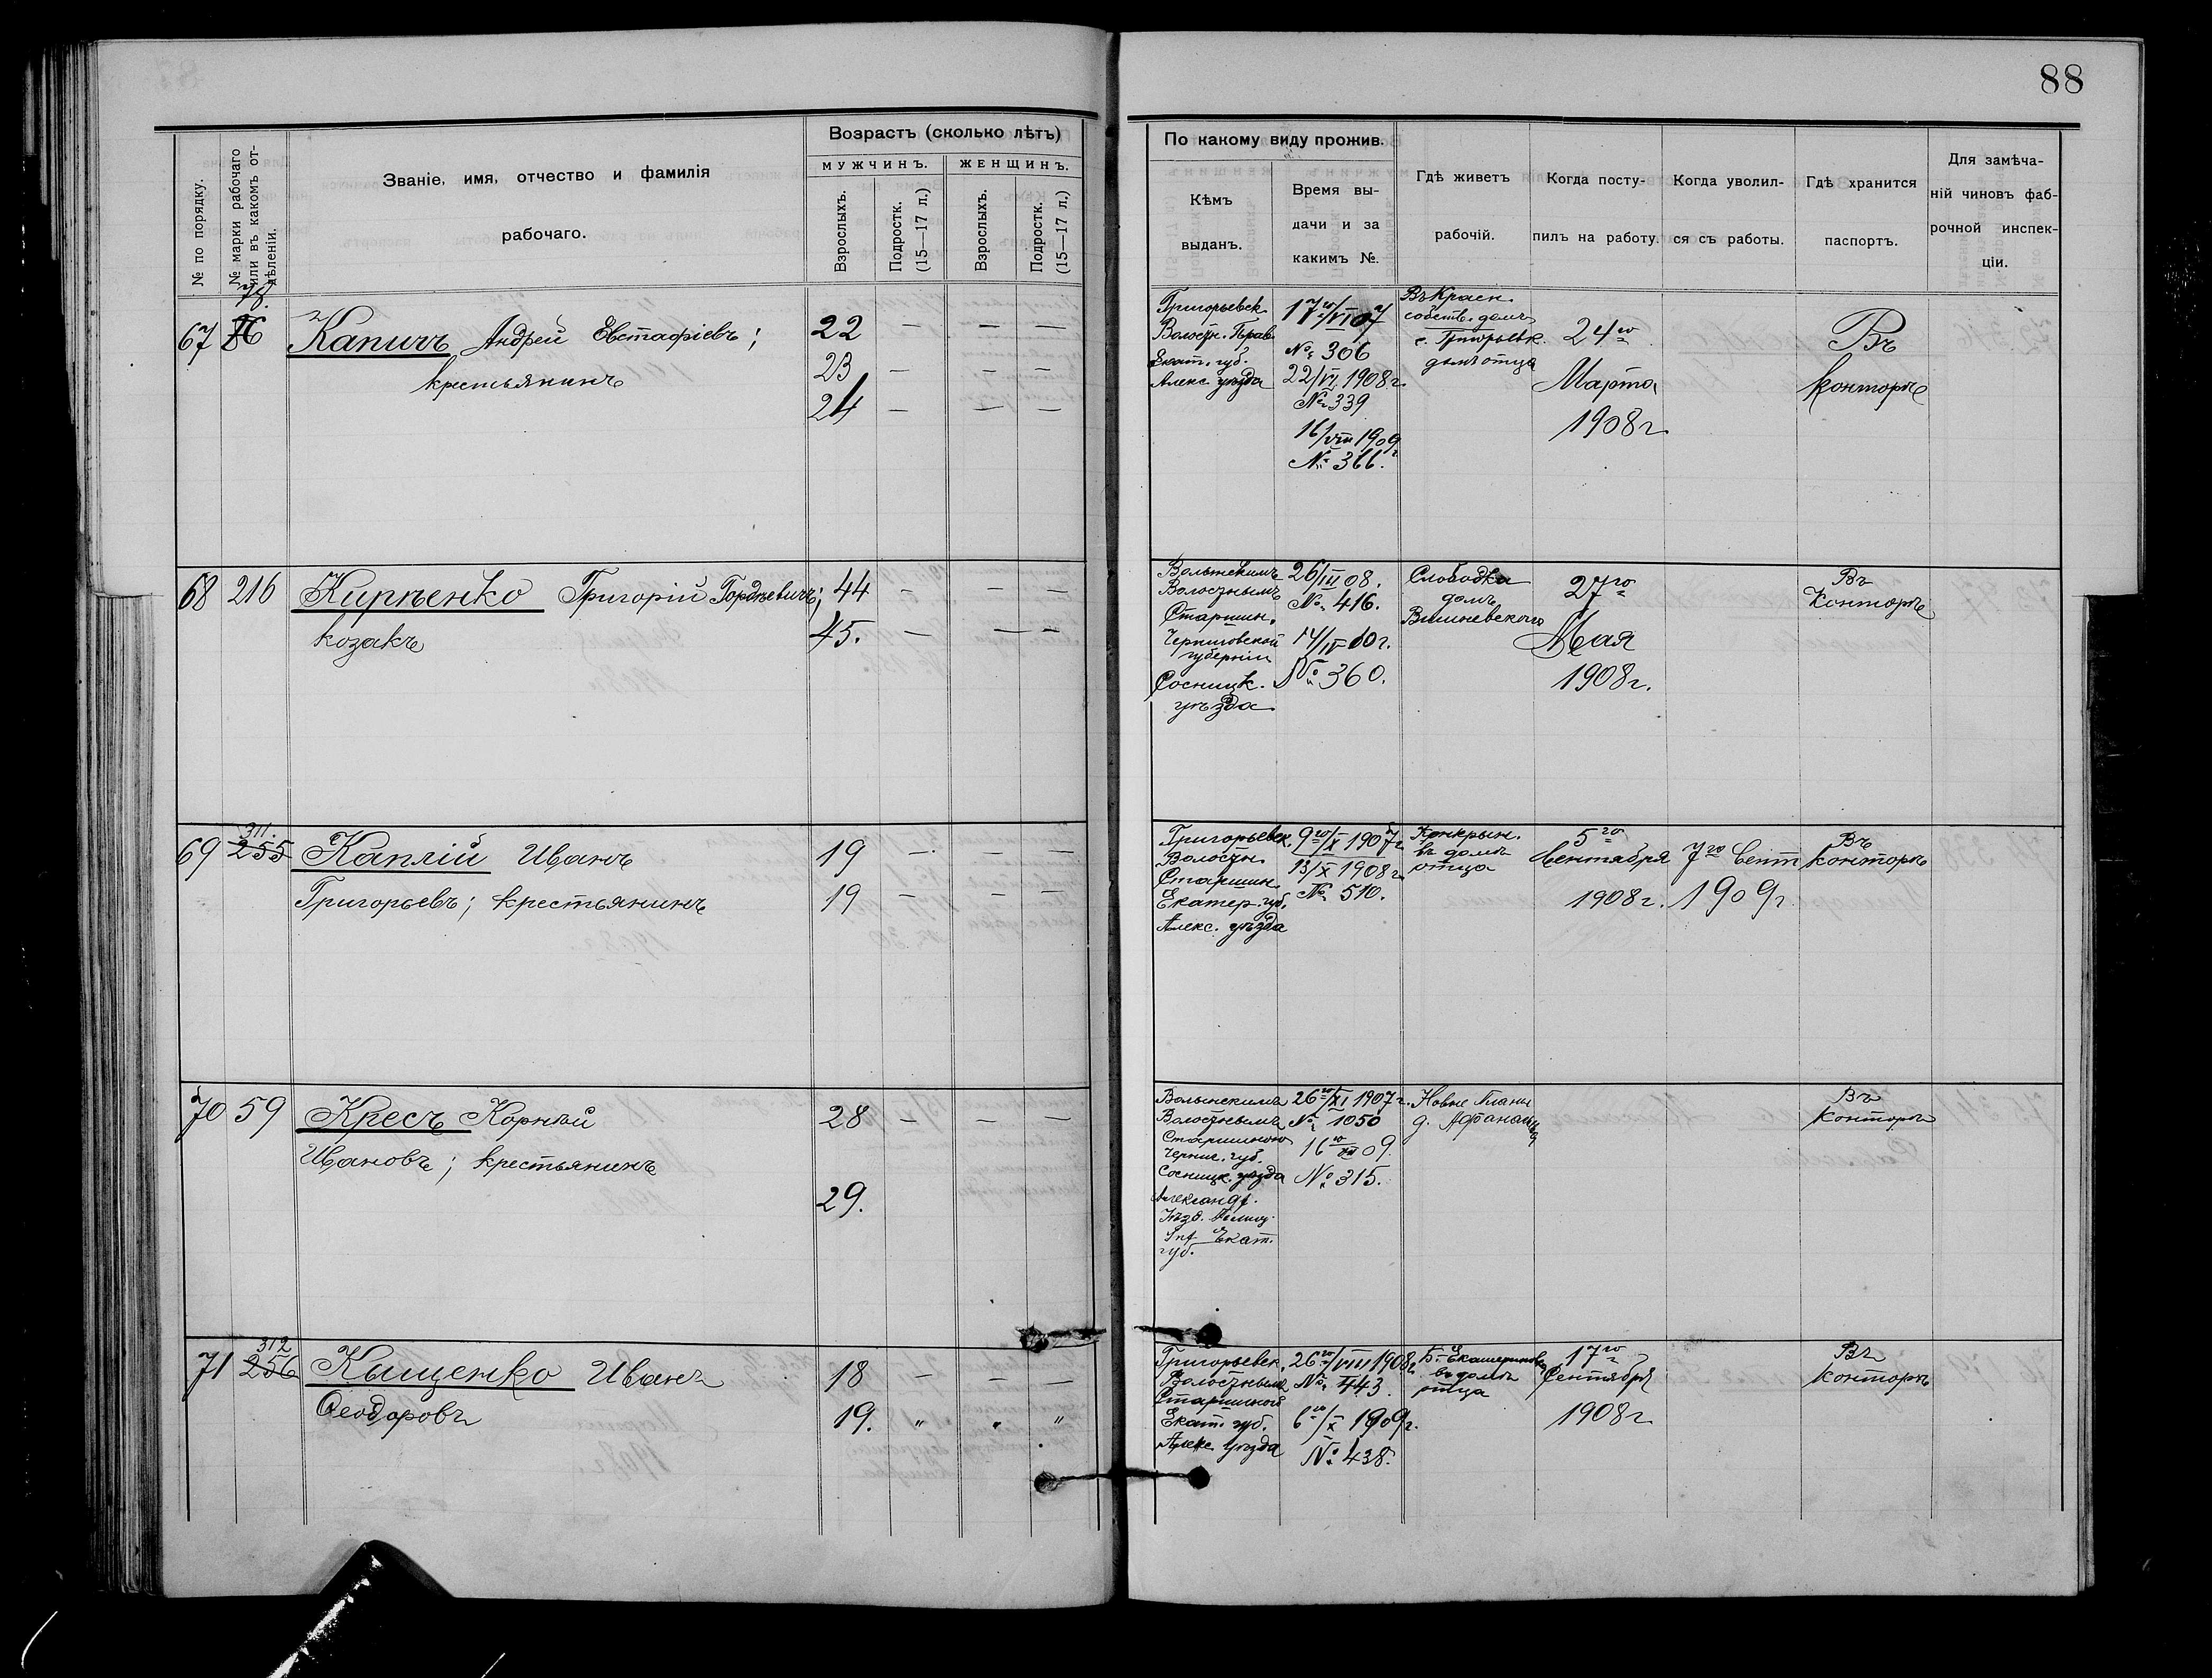 88
Возрастъ (сколько лѣтъ)
МУЖЧИНЪ.
ЖЕНЩИНЪ.
№ по порядку.
№ марки рабочаго
или въ какомъ от-
дѣленіи.
Званіе, имя, отчество и фамилія
рабочаго.
Взрослыхъ.
Подростк.
(15—17 л.)
Взрослыхъ.
Подростк.
(15—17 л.)
По какому виду прожив.
Кѣмъ
выданъ.
Время вы-
дачи и за
какимъ №.
Гдѣ живетъ
рабочій.
Когда посту-
пилъ на работу.
Когда уволил-
ся съ работы.
Гдѣ хранится
паспортъ.
Для замѣча-
ній чиновъ фаб-
рочной инспек-
ціи.
67
Капичъ Андрей Евстафіевъ;
крестьянинъ
22 — — —
23 — — —
24 — — —
Григорьевск.
Волостн. Прав.
Екат. губ.
Алекс. уѣзда
17го/VI 07
№ 306
22/VI 1908 г.
№ 339
16/VIII 1909 г.
№ 366.
Въ Красн.
собств. домъ
с. Григорьевк.
домъ отца
24го
Марта
1908 г.
Въ
Конторѣ
68 216
Кириенко Григорій Гордѣевичъ;
козакъ
44 — — —
45. — — —
Волынскимъ
Волостнымъ
Старшин.
Черниговской
губерніи
Сосницк.
уѣзда
26/III 08.
№ 416.
14/IV 10 г.
№ 360.
Слободка
домъ
Вишневскаго
27го
Мая
1908 г.
Въ
Конторѣ
69 311.
255
Каплій Иванъ
Григорьевъ; крестьянинъ
19 — — —
19 — — —
Григорьевск.
Волостн.
Старшин.
Екатер. губ.
Алекс. уѣзда
9го/X 1907 г.
13/X 1908 г.
№ 510.
въ домѣ
отца
5го
Сентября
1908 г.
7го Сент
1909 г.
Въ
конторѣ
70 59
Кресъ Корнѣй
Ивановъ; крестьянинъ
28 — — —
29.
Волынскимъ
Волостнымъ
Старшиною
Черниг. губ.
Сосницк. уѣзда
Александр.
Екат.
губ.
26го/XI 1907 г.
№ 1050
16го/XII 09.
№ 315.
Новые Планы
д. Афанасьева
Въ
конторѣ
71 312
256
Кыщенко Иванъ
Ѳеодоровъ
18 — — —
19. „ „ „
Григорьевск.
Волостнымъ
Старшиной
Екат. губ.
Алекс. уѣзда
26го/VIII 1908 г.
№ 443.
6го/X 1909 г.
№ 438.
Б. Екатериновк.
въ домѣ
отца
17го
Сентября
1908 г.
Въ
конторѣ